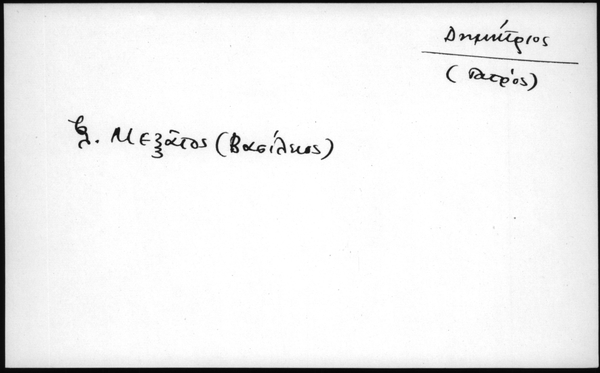 Δημήτριος
(Πατρός)
βλ. Μεξᾶτος (Βασίλειος)